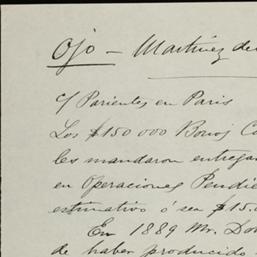 Ojo — Martinez de
c/ Parientes en Paris
Los $150 000 Bonos C
les mandaron entregar
en Operaciones Pendie
estimativo ó sea $15.
En 1889 Mr. Do
de haber producido